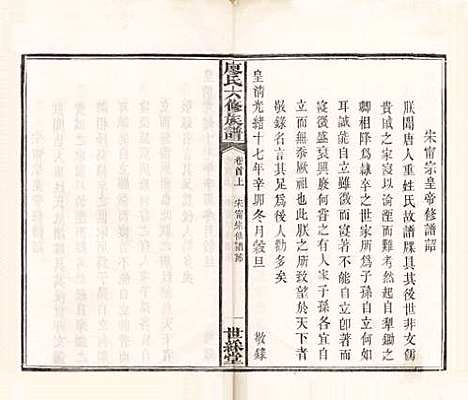 宋甯宗皇帝修譜詔
朕聞唐人重姓氏故譜牒具其後世非文儒
貴戚之家寖以淪湮而難考然起自犁鋤之
卿相降為隸卒之世家所為子孫自立何如
耳誠能自立雖微而寖著不能自立卽著而
寖微盛衰興廢何嘗之有人家子孫各宜自
立而無忝厥祖也此朕之所致望於天下也
敬錄名言其足為後人勸多矣
皇淸光緖十七年辛卯冬月穀旦
敬錄
廖氏六修族譜
卷首上
宋甯宗修譜詔
一
世綵堂